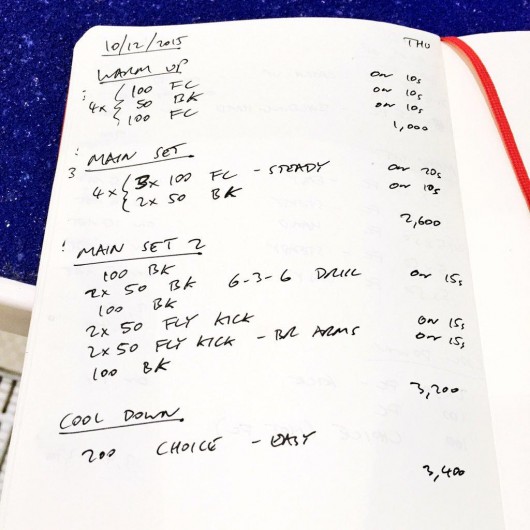 10/12/2015 THU
WARM UP
4x { 100 FC on 10s
50 BK on 10s
100 FC on 10s
1,000
MAIN SET
4x { 3x 100 FC - STEADY on 20s
2x 50 BK on 10s
2,600
MAIN SET 2
100 BK
2x 50 BK 6-3-6 DRILL on 15s
100 BK
2x 50 FLY KICK on 15s
2x 50 FLY KICK - BR ARMS on 15s
100 BK
3,200
COOL DOWN
200 CHOICE - EASY
3,400